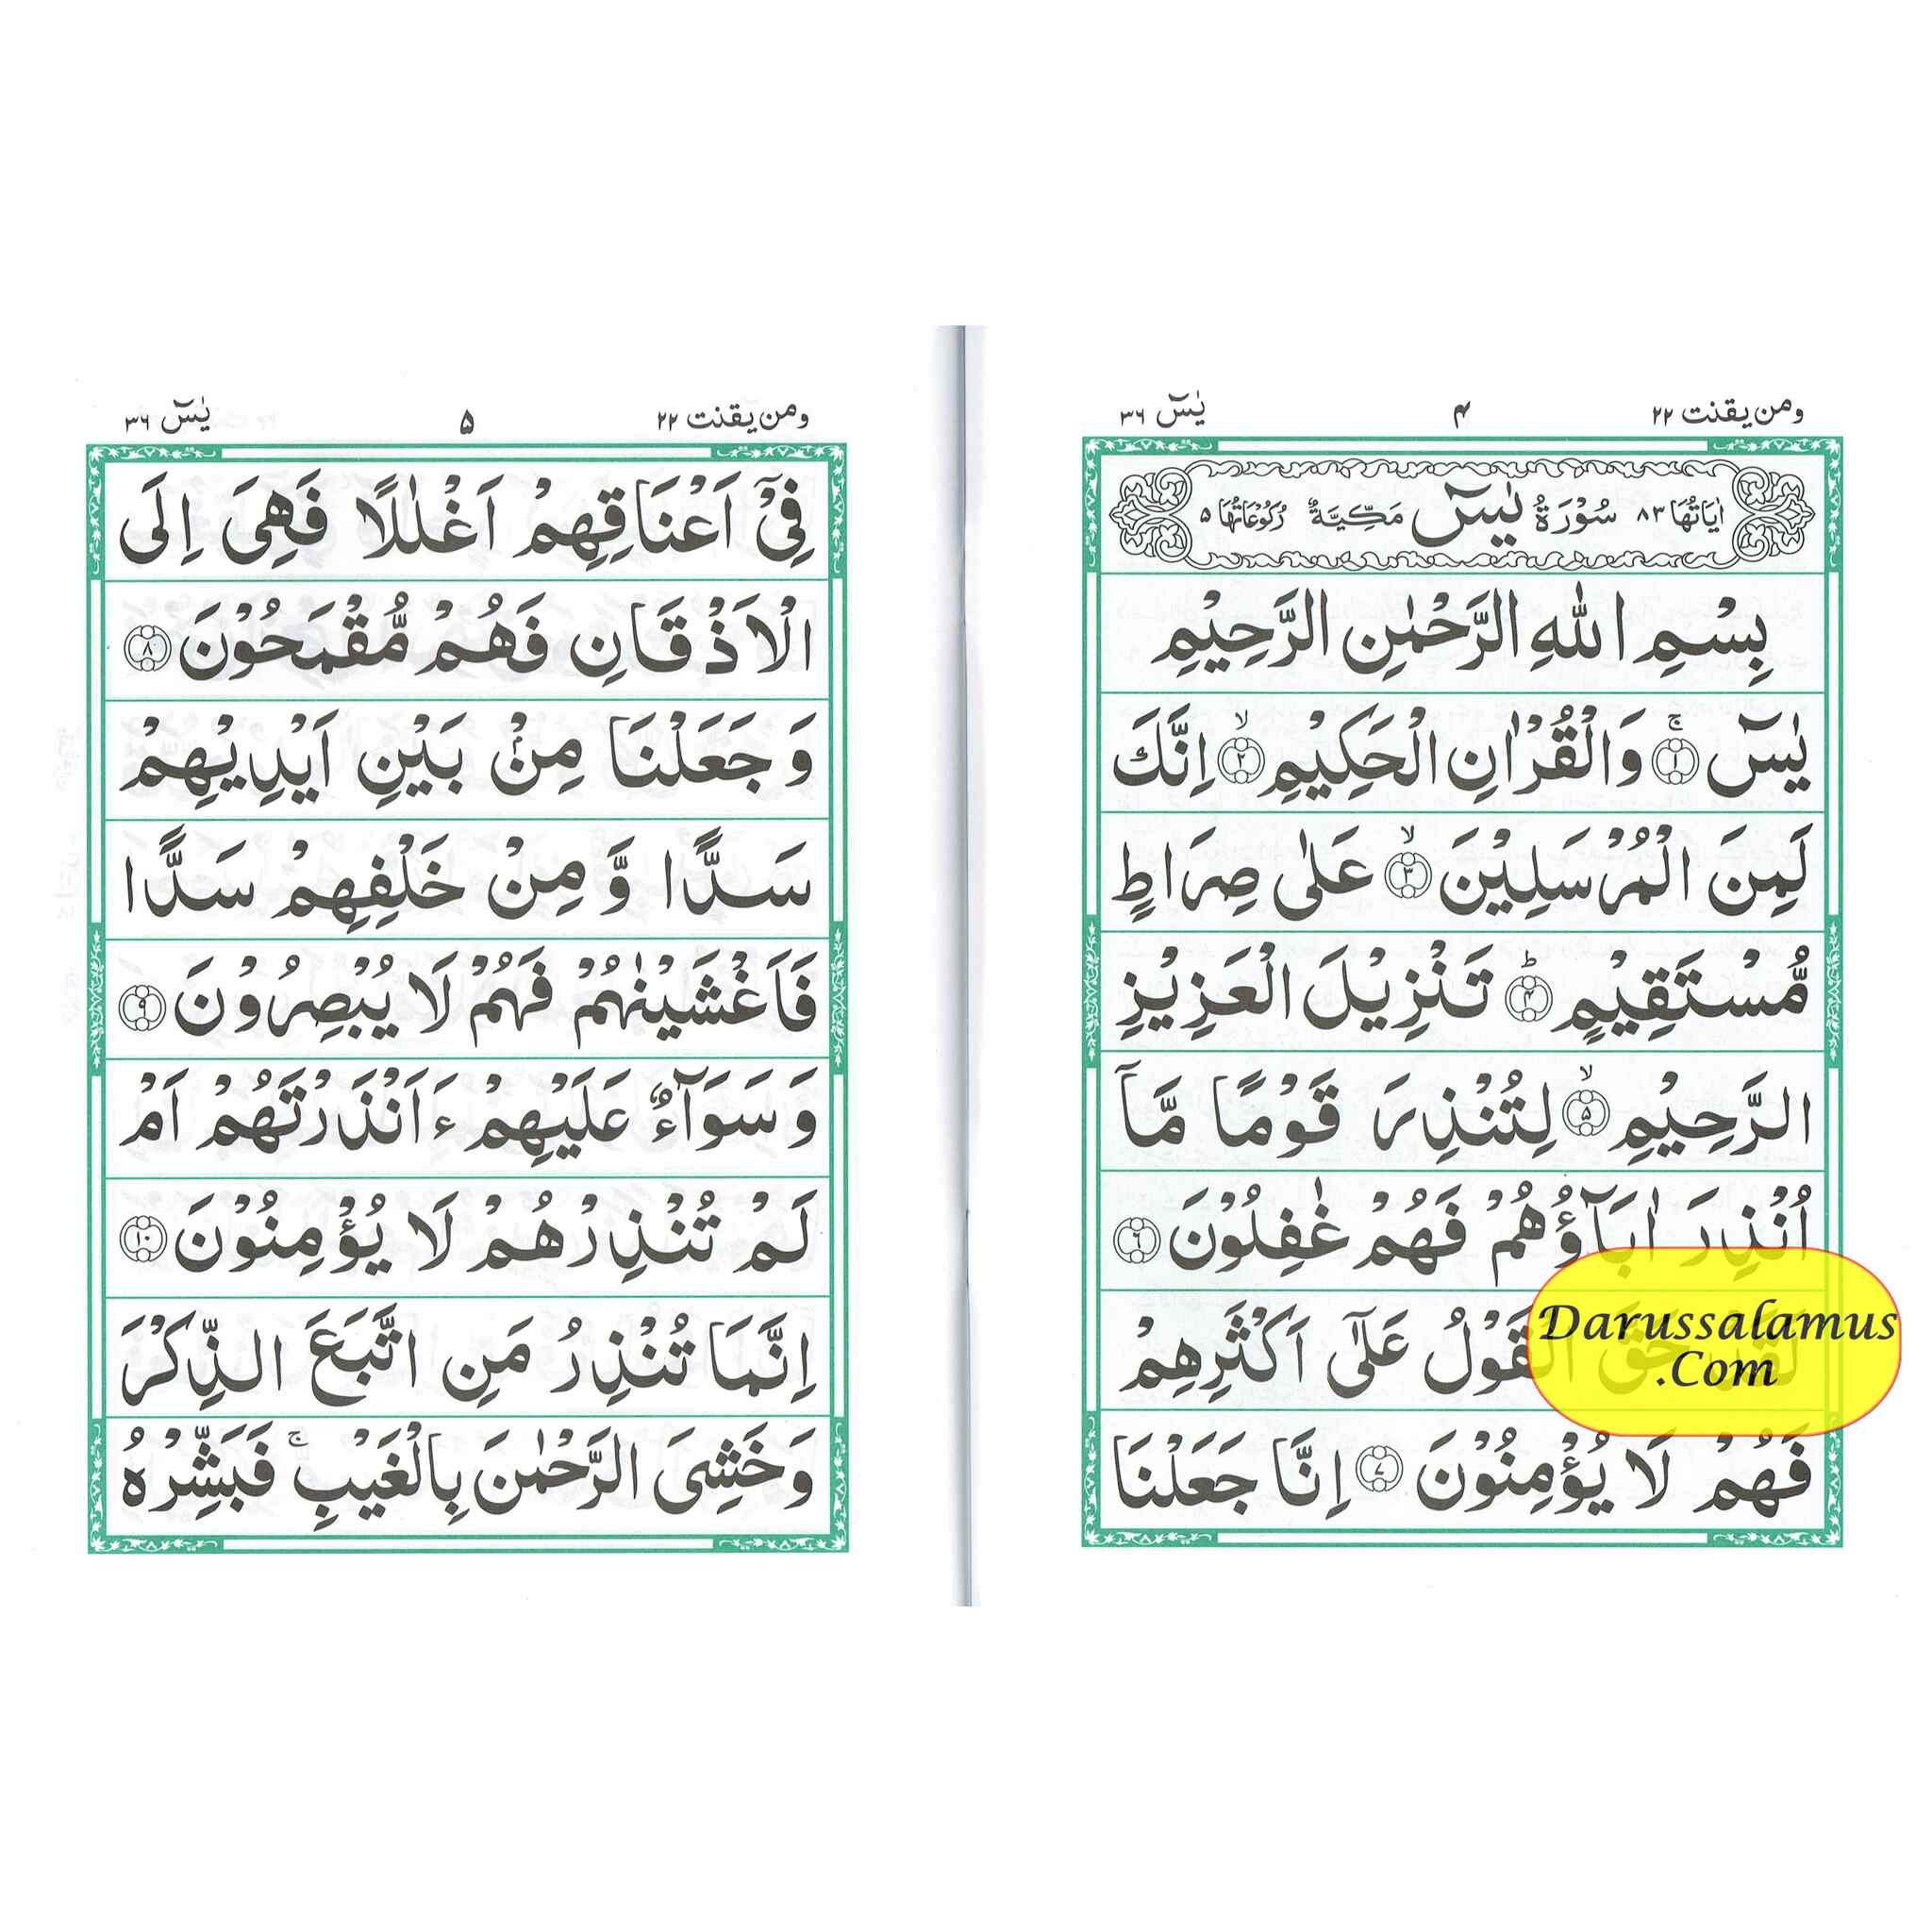 ومن يقنت ٢٢
۴
يٰسٓ ٣٦
اٰيَاتُهَا ٨٣ سُوْرَةُ يٰسٓ مَكِّيَّةٌ رُكُوْعَاتُهَا ۵
بِسْمِ اللهِ الرَّحْمٰنِ الرَّحِيْمِ
يٰسٓ ۚ ﴿١﴾ وَالْقُرْاٰنِ الْحَكِيْمِ ۙ ﴿٢﴾ اِنَّكَ
لَمِنَ الْمُرْسَلِيْنَ ۙ ﴿٣﴾ عَلٰى صِرَاطٍ
مُّسْتَقِيْمٍ ؕ ﴿۴﴾ تَنْزِيْلَ الْعَزِيْزِ
الرَّحِيْمِ ۙ ﴿۵﴾ لِتُنْذِرَ قَوْمًا مَّآ
اُنْذِرَ اٰبَآؤُهُمْ فَهُمْ غٰفِلُوْنَ ﴿٦﴾
لَقَدْ حَقَّ الْقَوْلُ عَلٰٓى اَكْثَرِهِمْ
فَهُمْ لَا يُؤْمِنُوْنَ ﴿٧﴾ اِنَّا جَعَلْنَا
Darussalamus
.Com
ومن يقنت ٢٢
۵
يٰسٓ ٣٦
فِيْٓ اَعْنَاقِهِمْ اَغْلٰلًا فَهِيَ اِلَى
الْاَذْقَانِ فَهُمْ مُّقْمَحُوْنَ ﴿٨﴾
وَجَعَلْنَا مِنْۢ بَيْنِ اَيْدِيْهِمْ
سَدًّا وَّمِنْ خَلْفِهِمْ سَدًّا
فَاَغْشَيْنٰهُمْ فَهُمْ لَا يُبْصِرُوْنَ ﴿٩﴾
وَسَوَآءٌ عَلَيْهِمْ ءَاَنْذَرْتَهُمْ اَمْ
لَمْ تُنْذِرْهُمْ لَا يُؤْمِنُوْنَ ﴿١٠﴾
اِنَّمَا تُنْذِرُ مَنِ اتَّبَعَ الذِّكْرَ
وَخَشِيَ الرَّحْمٰنَ بِالْغَيْبِ ۚ فَبَشِّرْهُ